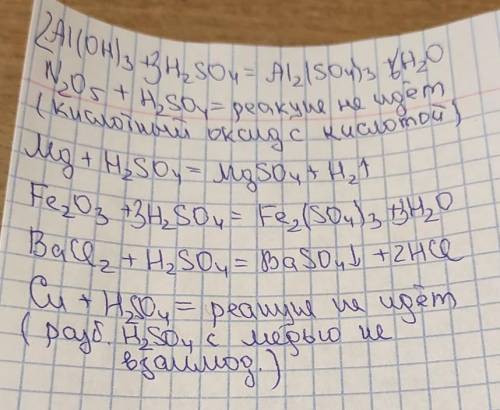 2Al(OH)3 + 3H2SO4 = Al2(SO4)3 + 6H2O
N2O5 + H2SO4 = реакция не идёт
(кислотный оксид с кислотой)
Mg + H2SO4 = MgSO4 + H2↑
Fe2O3 + 3H2SO4 = Fe2(SO4)3 + 3H2O
BaCl2 + H2SO4 = BaSO4↓ + 2HCl
Cu + H2SO4 = реакция не идёт
(разб. H2SO4 с медью не
взаимод.)